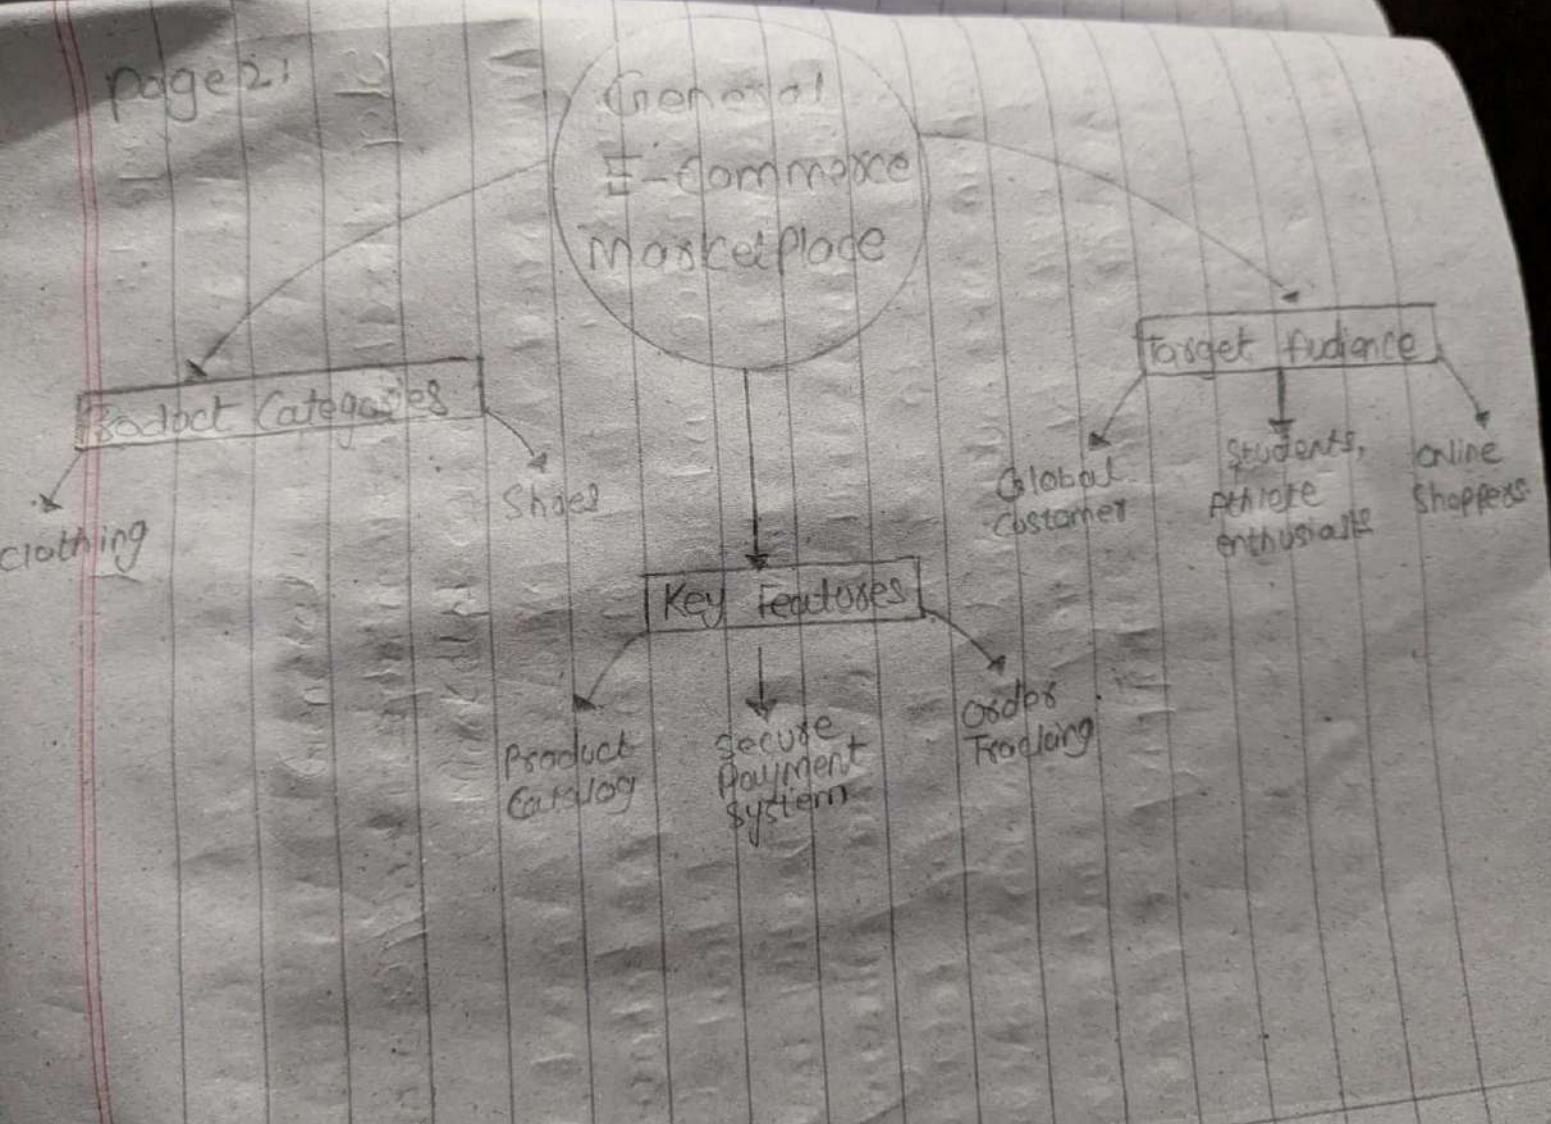 Page 2:
General
E-Commerce
Marketplace
Product Categories
Clothing
Shoes
Key Features
Product
Catalog
Secure
Payment
System
Order
Tracking
Target Audience
Global
Customer
Students,
Athlete
enthusiasts
Online
Shoppers